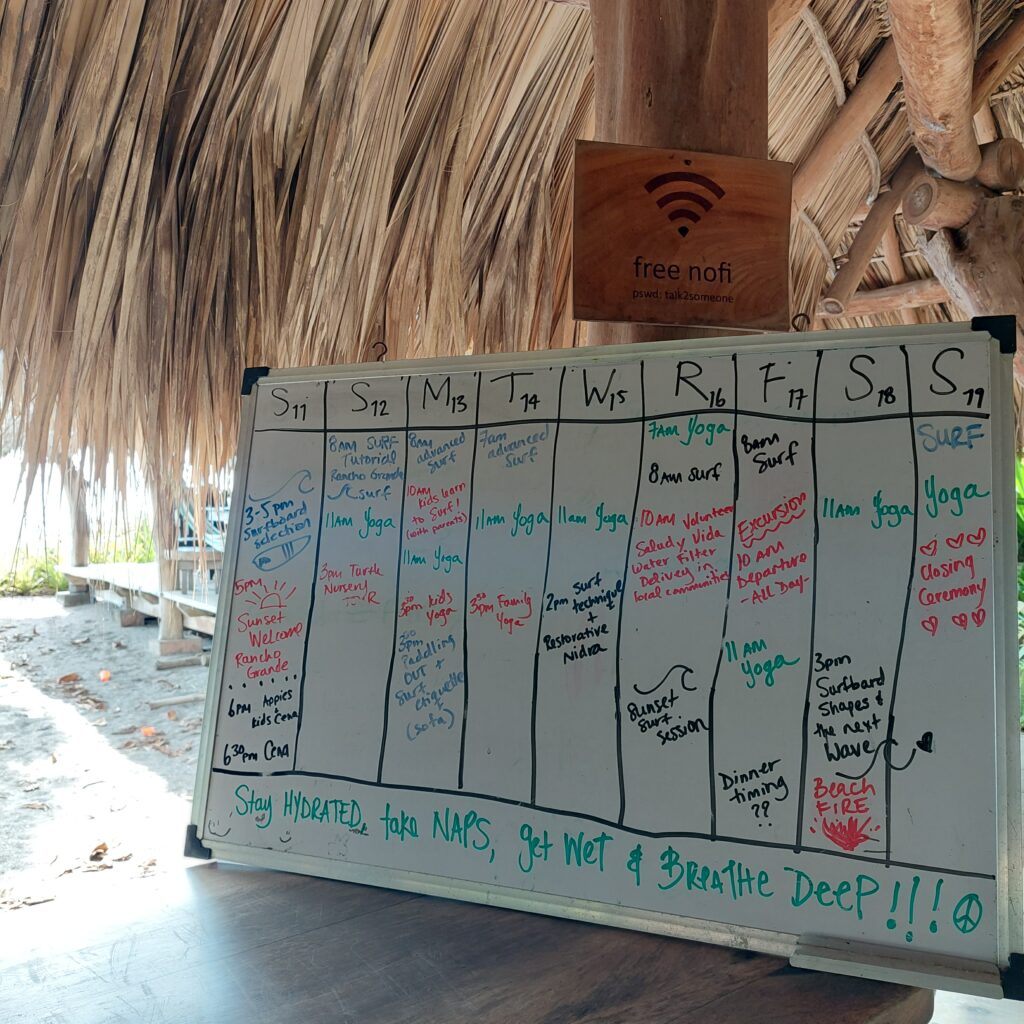 free nofi
pswd: talk2someone
S11
3-5pm
Surfboard
selection
5pm
Sunset
Welcome
Rancho
Grande
6pm Appies
kids Cena
630pm Cena
S12
8am SURF
Tutorial
Rancho Grande
surf
11am Yoga
3pm Turtle
Nursery
M13
8am
advanced
surf
10am
kids learn
to surf!
(with parents)
11am Yoga
330 kids
Yoga
3pm
Paddling
OUT +
Surf
etiquette
(sofa)
T14
7am advanced
Surf
11am Yoga
330pm Family
Yoga
W15
11am Yoga
2pm surf
technique
+
Restorative
Nidra
R16
7am Yoga
8am surf
10am Volunteer
Salud y Vida
Water Filter
Delivery in
local communities
Sunset
surf
session
F17
8am
Surf
Excursion
10am
Departure
- All Day-
11am
Yoga
Dinner
timing
??
S18
11am Yoga
3pm
Surfboard
Shapes &
the next
Wave
Beach
FIRE
S19
SURF
Yoga
Closing
Ceremony
Stay HYDRATED, take NAPS, get WET & BREATHE DEEP!!!